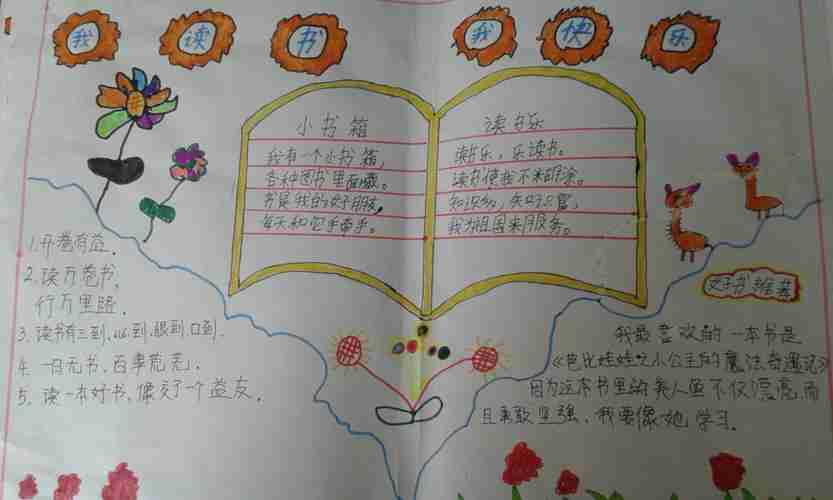 我读书我快乐
小书箱
我有一个小书箱，
各种图书里面藏。
书是我的好朋友，
每天和它手牵手。
读书乐
读书乐，乐读书。
读书使我不糊涂。
我为祖国来服务。
1.开卷有益。
2.读万卷书，
行万里路。
3.读书有三到，心到、眼到、口到.
4.一日无书，百事荒芜.
5.读一本好书，像交了一个益友.
好书推荐
我最喜欢的一本书是
《芭比娃娃之小公主的魔法奇遇记》
因为这本书里的美人鱼不仅漂亮，而
且勇敢坚强，我要像她学习.